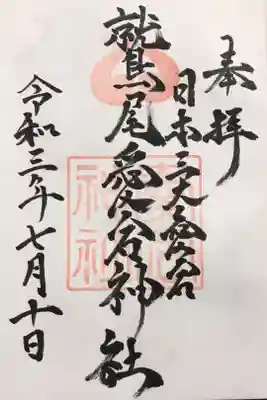 奉拝
日本三大愛宕
鷲尾愛宕神社
令和三年七月十日